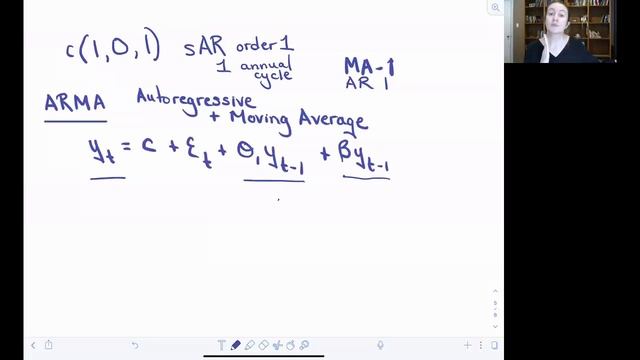 c(1,0,1) sAR order 1
1 annual
cycle
MA-1
AR 1
ARMA Autoregressive
+ Moving Average
y_t = c + ε_t + θ_1 y_{t-1} + β y_{t-1}